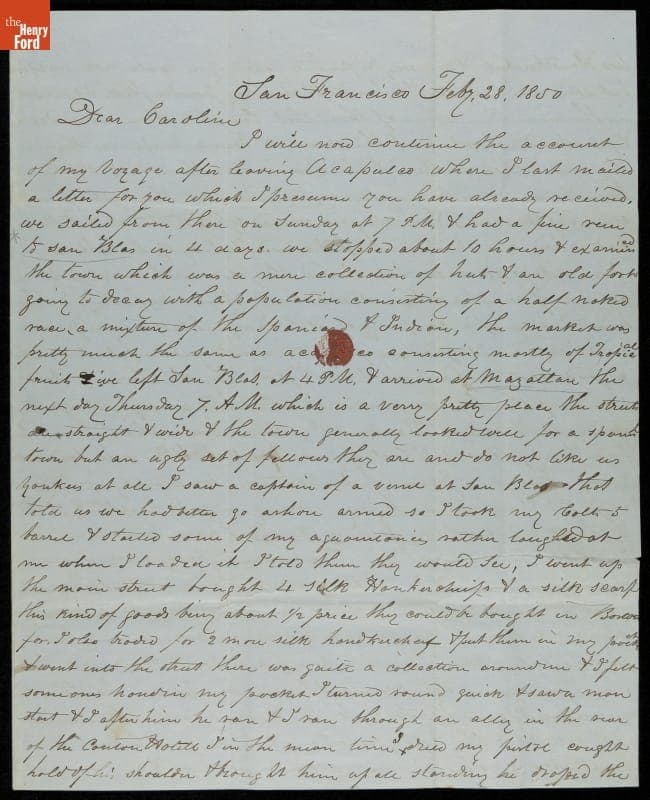 the
Henry
Ford
San Francisco Feby. 28. 1850
Dear Caroline
I will now continue the account
of my Voyage after leaving Acapulco where I last mailed
a letter for you which I presume you have already received.
we sailed from there on Sunday at 7 P.M. & had a fine run
to San Blas in 4 days. we stopped about 10 hours & examined
the town which was a mere collection of huts & an old fort
going to decay with a population consisting of a half naked
race, a mixture of the Spaniard & Indian, the market was
pretty much the same as Acapulco consisting mostly of Tropical
fruits & we left San Blas, at 4 P.M. & arrived at Mazattan the
next day Thursday 7. A.M. which is a verry pretty place the streets
are straight & wide & the town generally looked well for a spanish
town but an ugly set of fellows they are and do not like us
yankees at all I saw a captain of a vessel at San Blas that
told us we had better go ashore armed so I took my Colts 5
barrel & started some of my aquaintances rather laughed at
me when I loaded it I told them they would See, I went up
the main street bought 4 silk Hankerchiefs & a silk scarf
this kind of goods being about 1/2 price they could be bought in Boston
for. I also traded for 2 more silk handkerchief & put them in my pocket
& went into the street there was quite a collection around me & I felt
some ones hand in my pocket I turned round quick & saw a man
start & I after him he ran & I ran through an alley in the rear
of the Canton Hotell I in the mean time my pistol caught
hold of his shoulder & brought him up all standing he dropped the